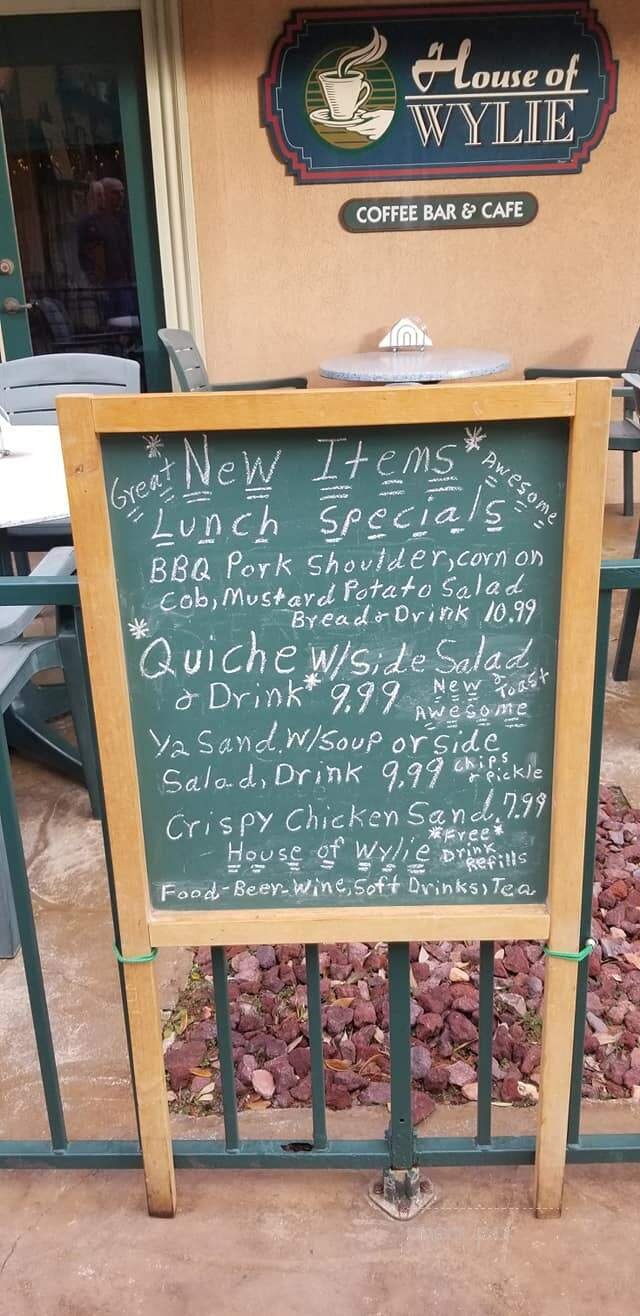 House of
WYLIE
COFFEE BAR & CAFE
Great *New Items* Awesome
Lunch Specials
BBQ Pork Shoulder, corn on
Cob, Mustard Potato Salad
Bread & Drink 10.99
*Quiche w/side Salad
& Drink* 9.99 New & Toast
Awesome
1/2 Sand. W/Soup or side
Salad, Drink 9.99 chips
& pickle
Crispy Chicken Sand. 7.99
House of Wylie *Free*
Drink
Refills
Food-Beer-Wine, Soft Drinks, Tea